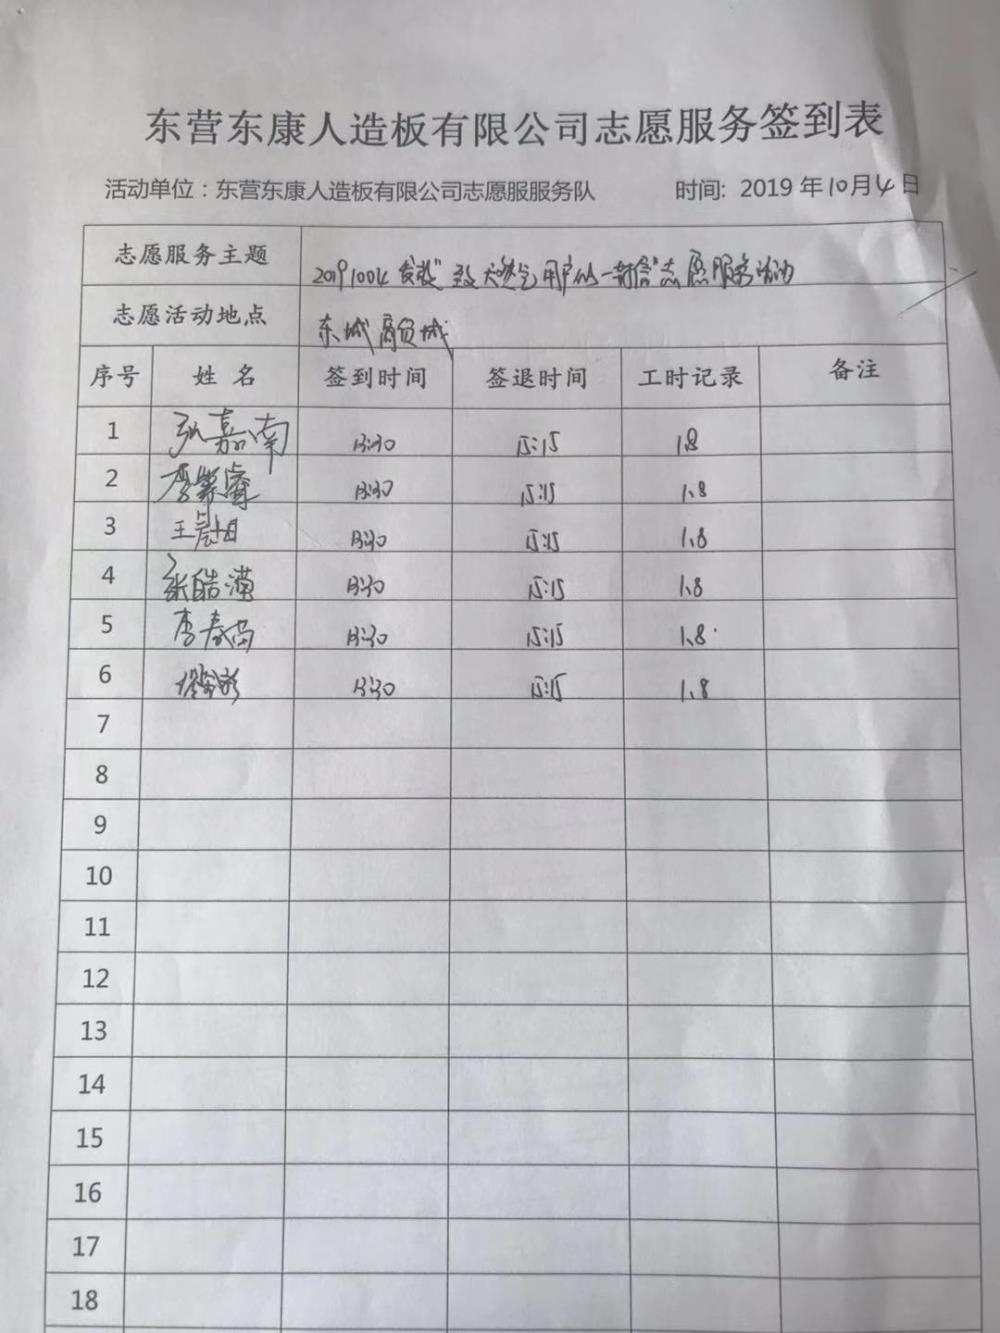 东营东康人造板有限公司志愿服务签到表
活动单位：东营东康人造板有限公司志愿服服务队 时间: 2019 年10月4日
志愿服务主题 20191004 发放"致天燃气用户的一封信"志愿服务活动
志愿活动地点 东城商贸城
序号 姓 名 签到时间 签退时间 工时记录 备注
1 张嘉南 13:30 15:15 1.8
2 13:30 15:15 1.8
3 13:30 15:15 1.8
4 张皓 13:30 15:15 1.8
5 李春 13:30 15:15 1.8
6 13:30 15:15 1.8
7
8
9
10
11
12
13
14
15
16
17
18